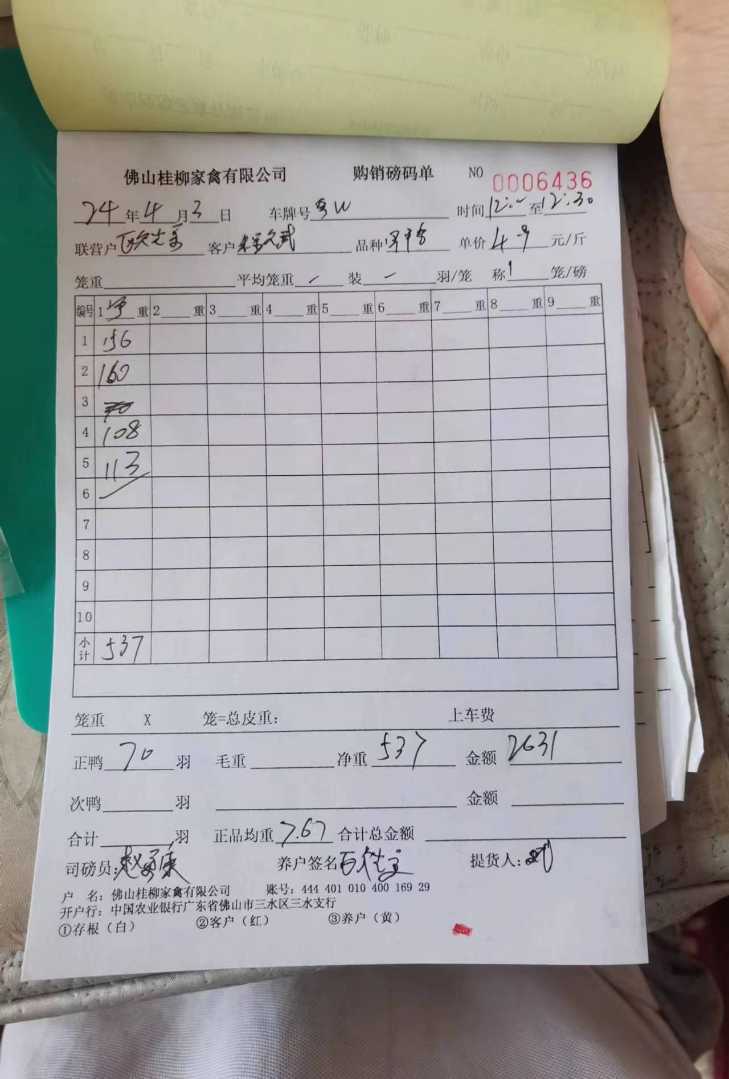 佛山桂柳家禽有限公司 购销磅码单 NO 0006436
24年4月3日 车牌号 时间12:00至12:30
联营户 客户 品种 单价4.9元/斤
笼重 平均笼重 / 装 — 羽/笼 称1笼/磅
编号 1净重 2 重 3 重 4 重 5 重 6 重 7 重 8 重 9 重
1 156
2 160
3
4 108
5 113
6
7
8
9
10
小计 537
笼重 X 笼=总皮重: 上车费
正鸭70羽 毛重 净重537 金额2631
次鸭 羽 金额
合计 羽 正品均重7.67 合计总金额
司磅员: 养户签名 提货人:
户 名: 佛山桂柳家禽有限公司 账号: 444 401 010 400 169 29
开户行: 中国农业银行广东省佛山市三水区三水支行
①存根（白） ②客户（红） ③养户（黄）